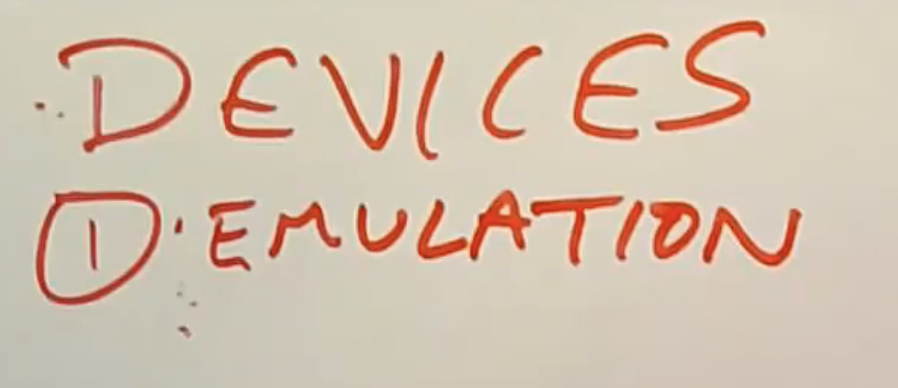 DEVICES
① EMULATION